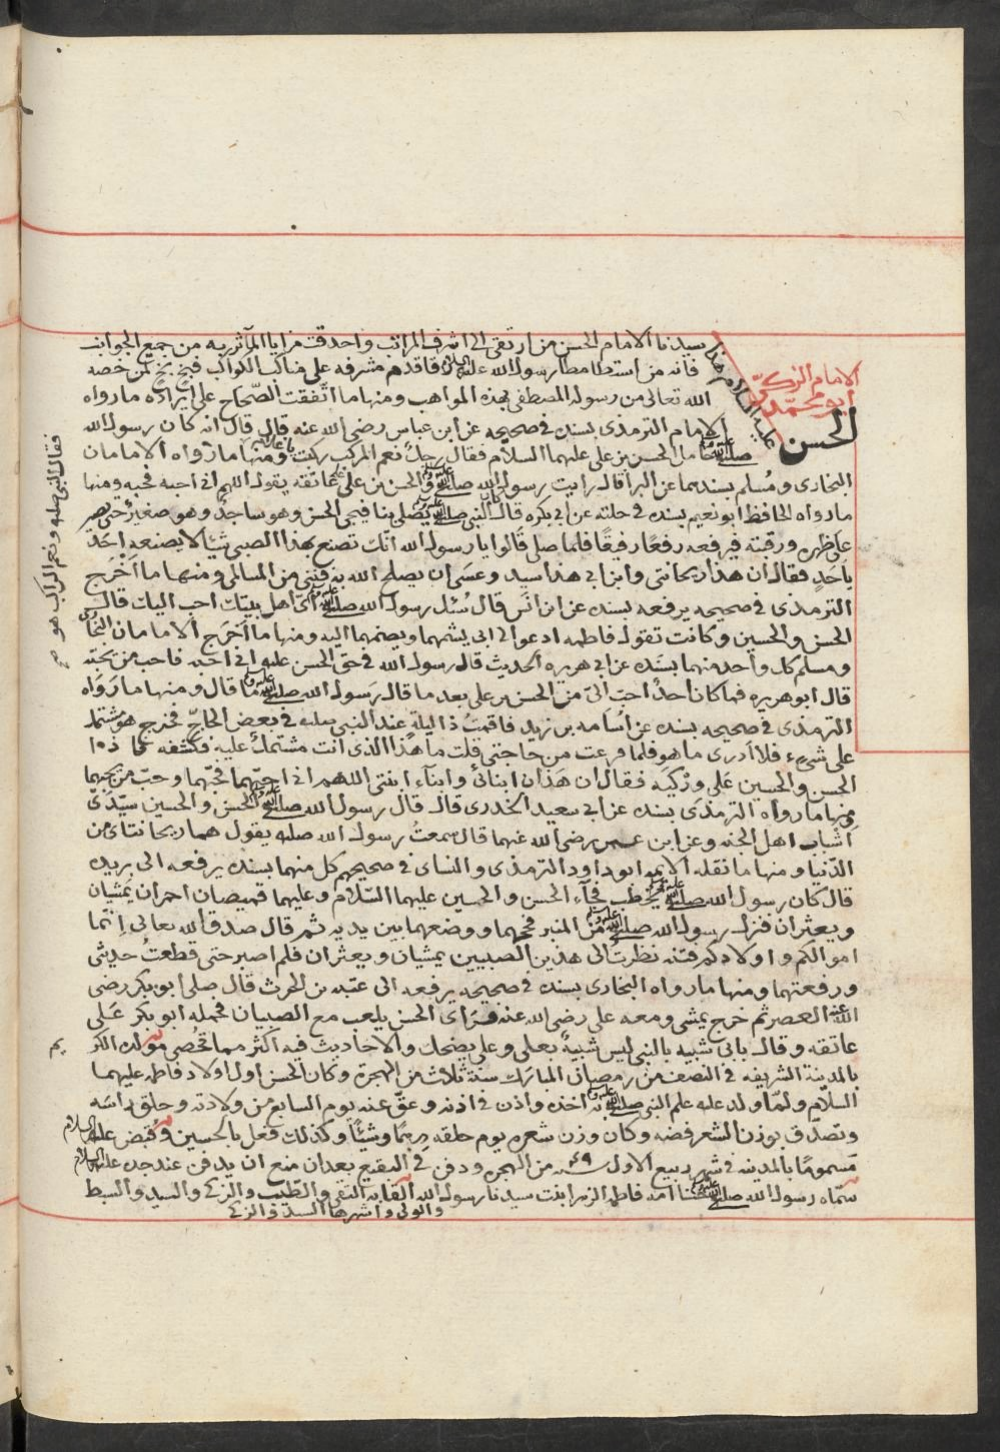 الامام الزكى
ابو محمد
الحسن
عليه السلام
سيدنا الامام الحسن من ارتقى الى اشرف المراتب واحدقت مزايا المآثر به من جميع الجوانب
فانه من استطا مطا رسول الله عليه السلام فاقدم مشرفه على مناكب الكواكب فبخ بخ لمن خصه
الله تعالى من رسوله المصطفى بهذه المواهب ومنها ما اتفقت الصحاح على ايراده ما رواه
الامام الترمذى بسنده فى صحيحه عن ابن عباس رضى الله عنه قال قال انه كان رسول الله
صلى الله عليه وسلم حامل الحسن بن على عليهما السلام فقال رجل نعم المركب ركبت يا غلام ومنها ما رواه الامامان
البخارى ومسلم بسندهما عن البرا قال رايت رسول الله صلى الله عليه وسلم والحسن بن على على عاتقه يقول اللهم انى احبه فحبه ومنها
ما رواه الحافظ ابو نعيم بسنده فى حلته عن ابى بكره قال كان النبى صلى الله عليه وسلم يصلى بنا فيجى الحسن وهو ساجد وهو صغير حتى يصير
على ظهره ورقبته فيرفعه رفعا رفيقا فلما صلى قالوا يا رسول الله انك تصنع بهذا الصبى شيئا لا يصنعه احد
باحد فقال ان هذا ريحانتى وابنى هذا سيد وعسى ان يصلح الله به فئتين من المسالمى ومنها ما اخرج
الترمذى فى صحيحه يرفعه بسنده عن ابن انس قال سئل رسول الله صلى الله عليه وسلم اى اهل بيتك احب اليك قال
الحسن والحسين وكانت تقول فاطمه ادعوا لى ابنى يشمهما ويضمهما اليه ومنها ما اخرج الامامان البخارى
ومسلم كل واحد منهما بسنده عن ابى هريره الحديث قال رسول الله فى حق الحسن عليه انى احبه فاحب من يحبه
قال ابو هريره فما كان احد احب الى من الحسن بن على بعد ما قال رسول الله صلى الله عليه وسلم ما قال ومنها ما رواه
الترمذى فى صحيحه بسنده عن اسامه بن زيد فاقمت ذا ليلة عند النبى صلعم فى بعض الحاج فخرج هو مشتمل
على شىء فلا ادرى ما هو فلما فرعت من حاجتى قلت ما هذا الذى انت مشتمل عليه فكشفه فاذا
الحسن والحسين على وركيه فقال ان هذان ابناى وابناء ابنتى اللهم انى احبهما فحبهما وحب من يحبهما
ومنها ما رواه الترمذى بسنده عن ابى سعيد الخدرى قال قال رسول الله صلى الله عليه وسلم الحسن والحسين سيدى
شباب اهل الجنه وعن ابن عمر رضى الله عنهما قال سمعت رسول الله صلعم يقول هما ريحانتاى من
الدنيا ومنها ما نقله الائمه ابو داود الترمذى والنساى فى صحيحهم كل منهما بسنده يرفعه الى بريده
قال كان رسول الله صلى الله عليه وسلم يخطب فجآء الحسن والحسين عليهما السلام وعليهما قميصان احمران يمشيان
ويعثران فنزل رسول الله صلى الله عليه وسلم من المنبر فحملهما ووضعهما بين يديه ثم قال صدق الله تعالى انما
اموالكم واولادكم فتنه نظرت الى هذين الصبيين يمشيان ويعثران فلم اصبر حتى قطعت حديثى
ورفعتهما ومنها ما رواه البخارى بسنده فى صحيحه يرفعه الى عتبه بن الحرث قال صلى ابو بكر رضى
الله عنه العصر ثم خرج يمشى ومعه على رضى الله عنه فراى الحسن يلعب مع الصبيان فحمله ابو بكر على
عاتقه وقال بابى شبيه بالنبى ليس شبيه بعلى وعلى يضحك والاحاديث فيه اكثر مما تحصى مولده الكر
يم
بالمدينة الشريفه فى النصف من رمضان المبارك سنة ثلاث من الهجرة وكان الحسن اول اولاد فاطمه عليهما
السلام ولما ولد عليه علم النبى صلى الله عليه وسلم به اخذه واذن فى اذنه وعق عنه يوم السابع من ولادته وحلق راسه
وتصدق بوزن الشعر فضه وكان وزن شعره يوم حلقه درهما وشيئا وكذلك فعل بالحسين وقبض عليه السلام
مسموما بالمدينه فى شهر ربيع الاول سنه ٤٩ من الهجره ودفن فى البقيع بعد ان منع ان يدفن عند جده عليه السلام
سماه رسول الله صلى الله عليه وسلم حسنا امه فاطمه الزهرا بنت سيدنا رسول الله القابه التقى والطيب والزكى والسيد والسبط
والولى واشهرها السيد والزكى
فقال النبى صلعم ونعم الراكب هو
صح